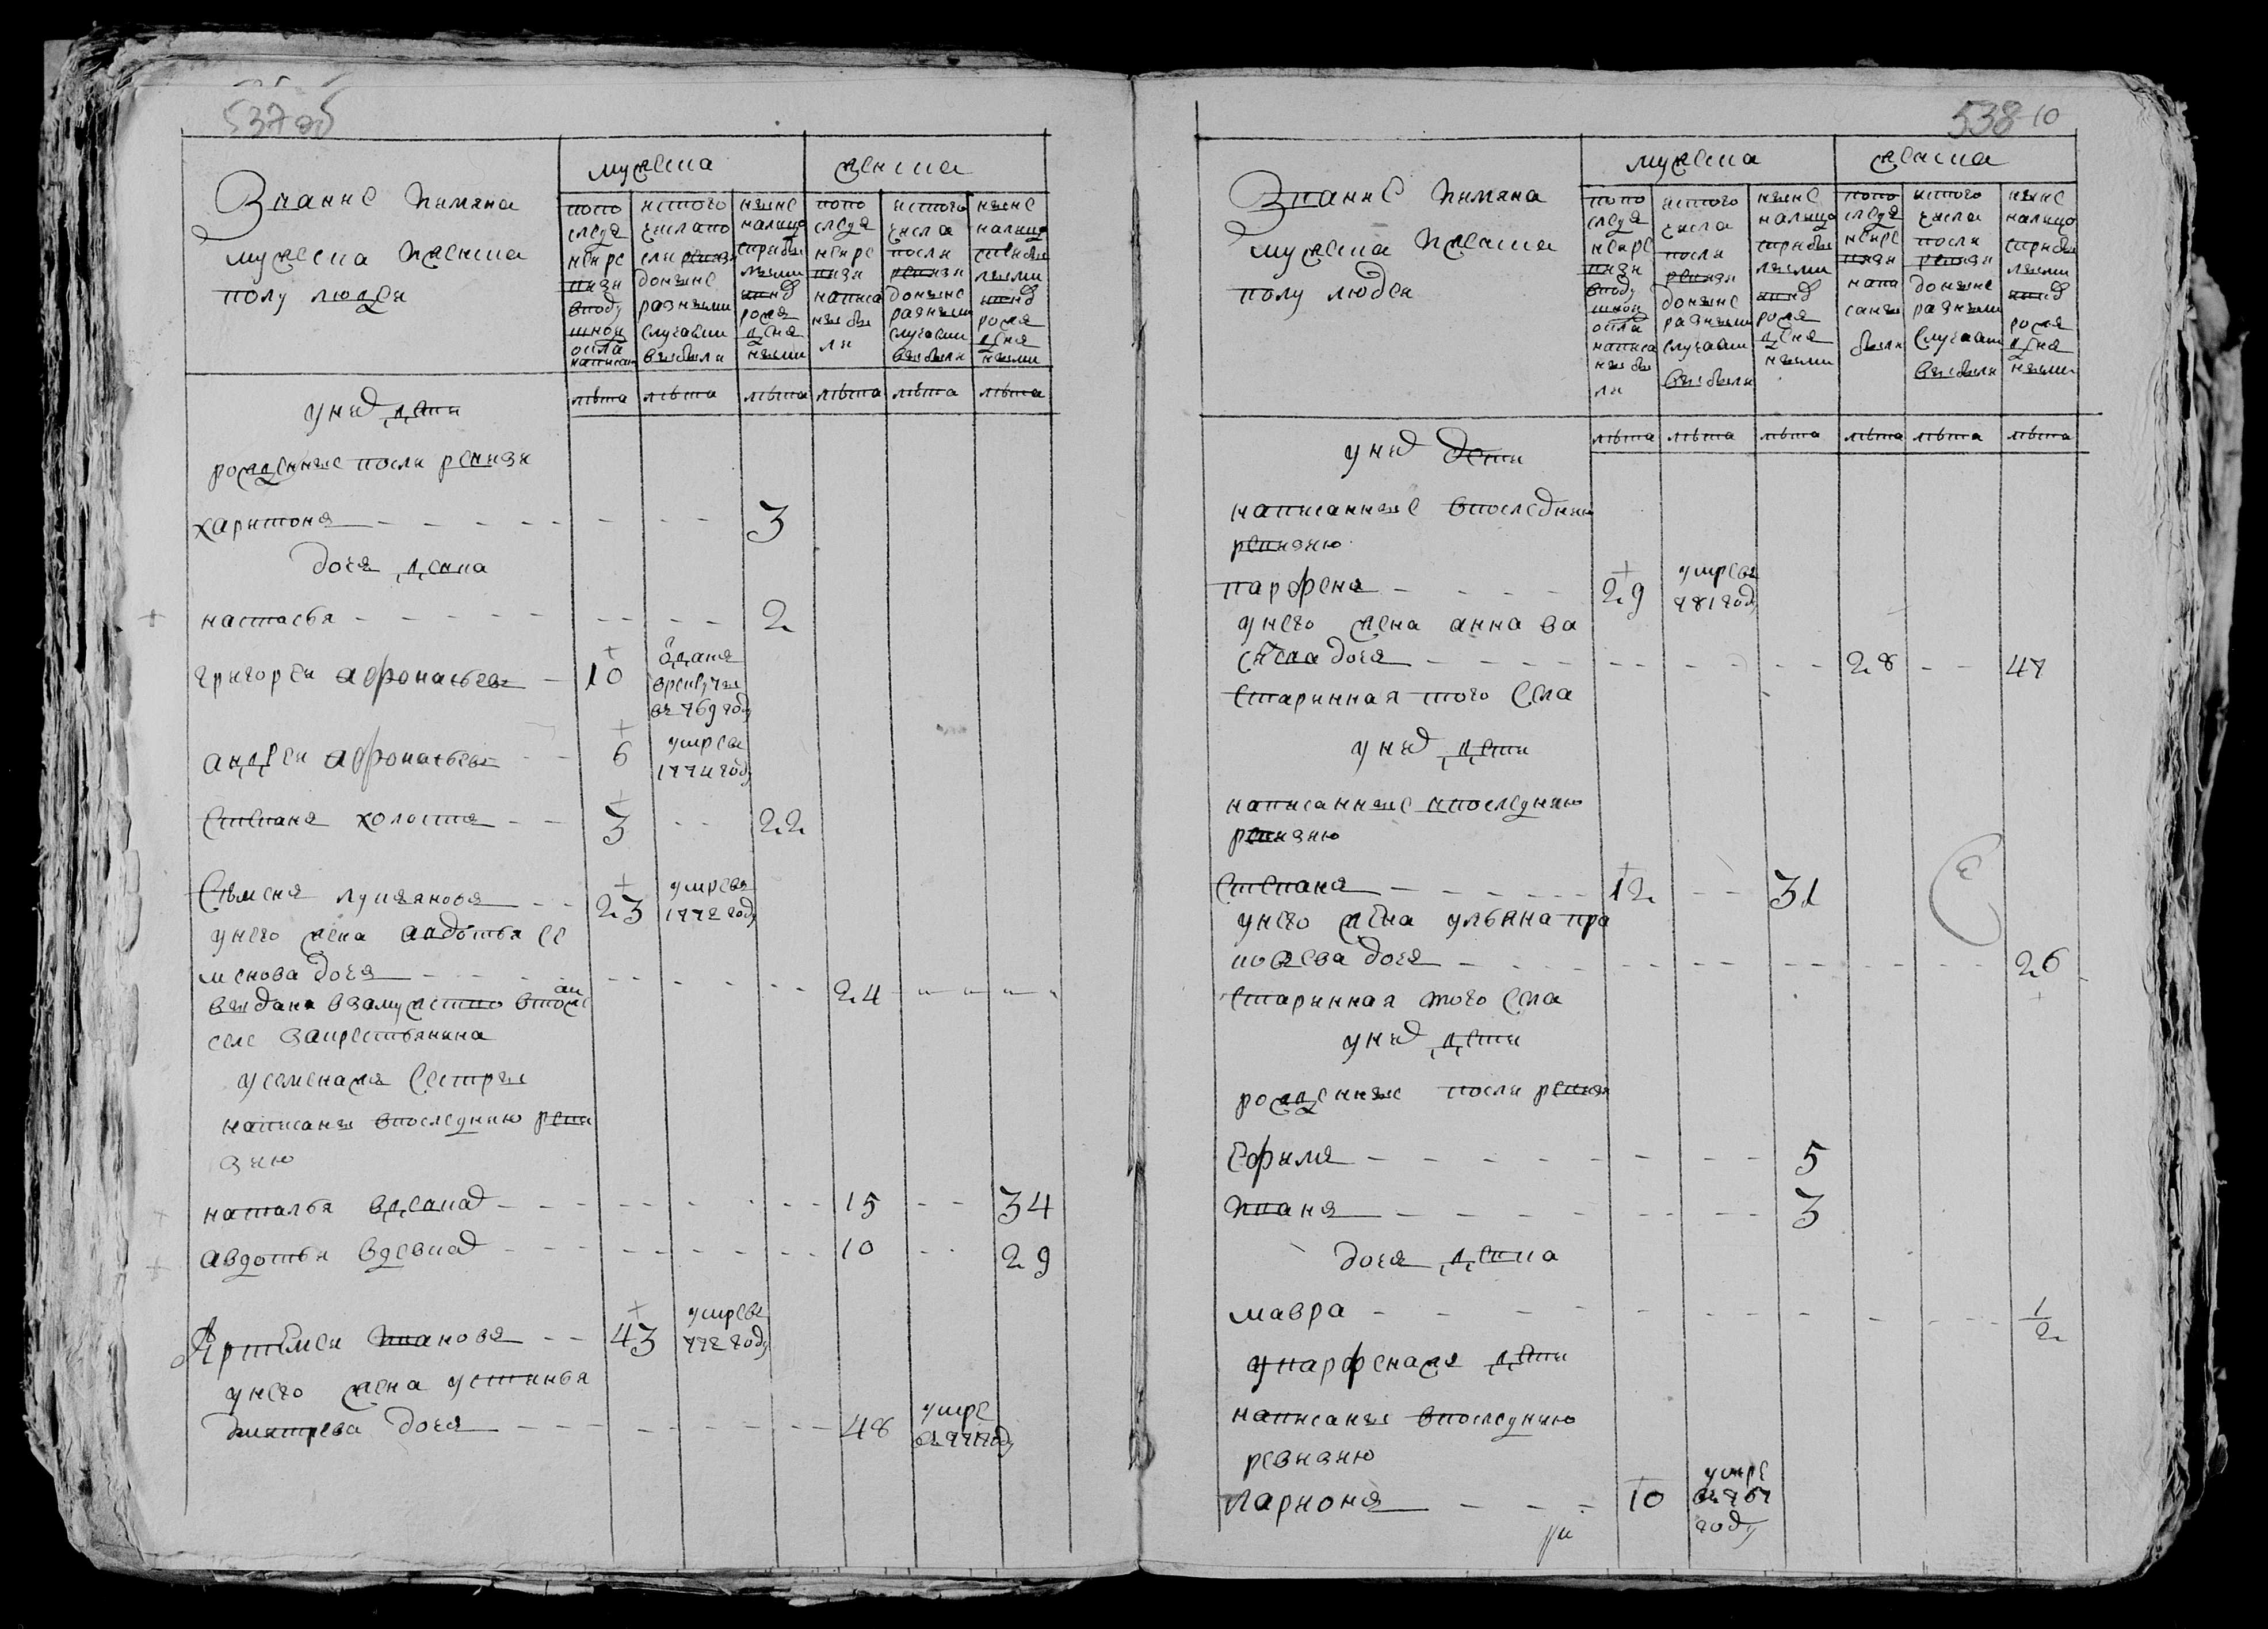 537 об
Звание имяна
мужеска и женска
полу людеи
мужеска
женска
попо следъ неи ре визи в поду шнои окла написан
ис того числа по сли ревизи до ныне разными случаями выбыли
ныне на лицо с прибылыми и внов рожденными
попо следъ неи ре визи написа ны бы ли
ис того числа посли ревизи до ныне разными случаями выбыли
ныне на лицо с прибылыми и внов рожденными
лѣта лѣта лѣта лѣта лѣта лѣта
у них дети
рожденные посли ревизи
харитонъ 3
дочь девка
+ настасья 2
григореи афонасьевъ + 10 отданъ в рекруты въ 769 году
андреи афонасьевъ + 6 умре въ 1774 году
степанъ холостъ + 3 22
Семенъ лукьяновъ + 23 умре въ 1772 году
у него жена авдотья се
менова дочь 24
выдана в замужство в томже
селе за крестьянина
у семена ж сестры
написаны в последнию реви
зию
+ наталья в девках 15 34
+ авдотья в девках 10 29
Артемеи ивановъ + 43 умре въ 772 году
у него жена устинья
дмитрева дочь 48 умре въ 771 году
538 10
Звание имяна
мужеска и женска
полу людеи
мужеска
женска
попо следъ неи ре визи в поду шнои окла написа ны бы ли
ис того числа посли ревизи до ныне разными случаями выбыли
ныне на лицо с прибылыми и внов рожденными
попо следъ неи ре визи напи саны были
ис того числа посли ревизи до ныне разными случаями выбыли
ныне на лицо с прибылыми и внов рожденными
лѣта лѣта лѣта лѣта лѣта лѣта
у них дети
написанные в последнию
ревизию
парфенъ + 29 умре въ 781 году
у него жена анна ва
сильева дочь 28 47
старинная того села
у них дети
написанные в последнию
ревизию
степанъ + 12 31
у него жена ульяна про
кофева дочь 26
старинная того села
у них дети
рожденные посли ревизи
ефимъ 5
иванъ 3
дочь девка
мавра 1/2
у парфена ж дети
написаны в последнию
ревизию
ларионъ + 10 умре въ 767 году